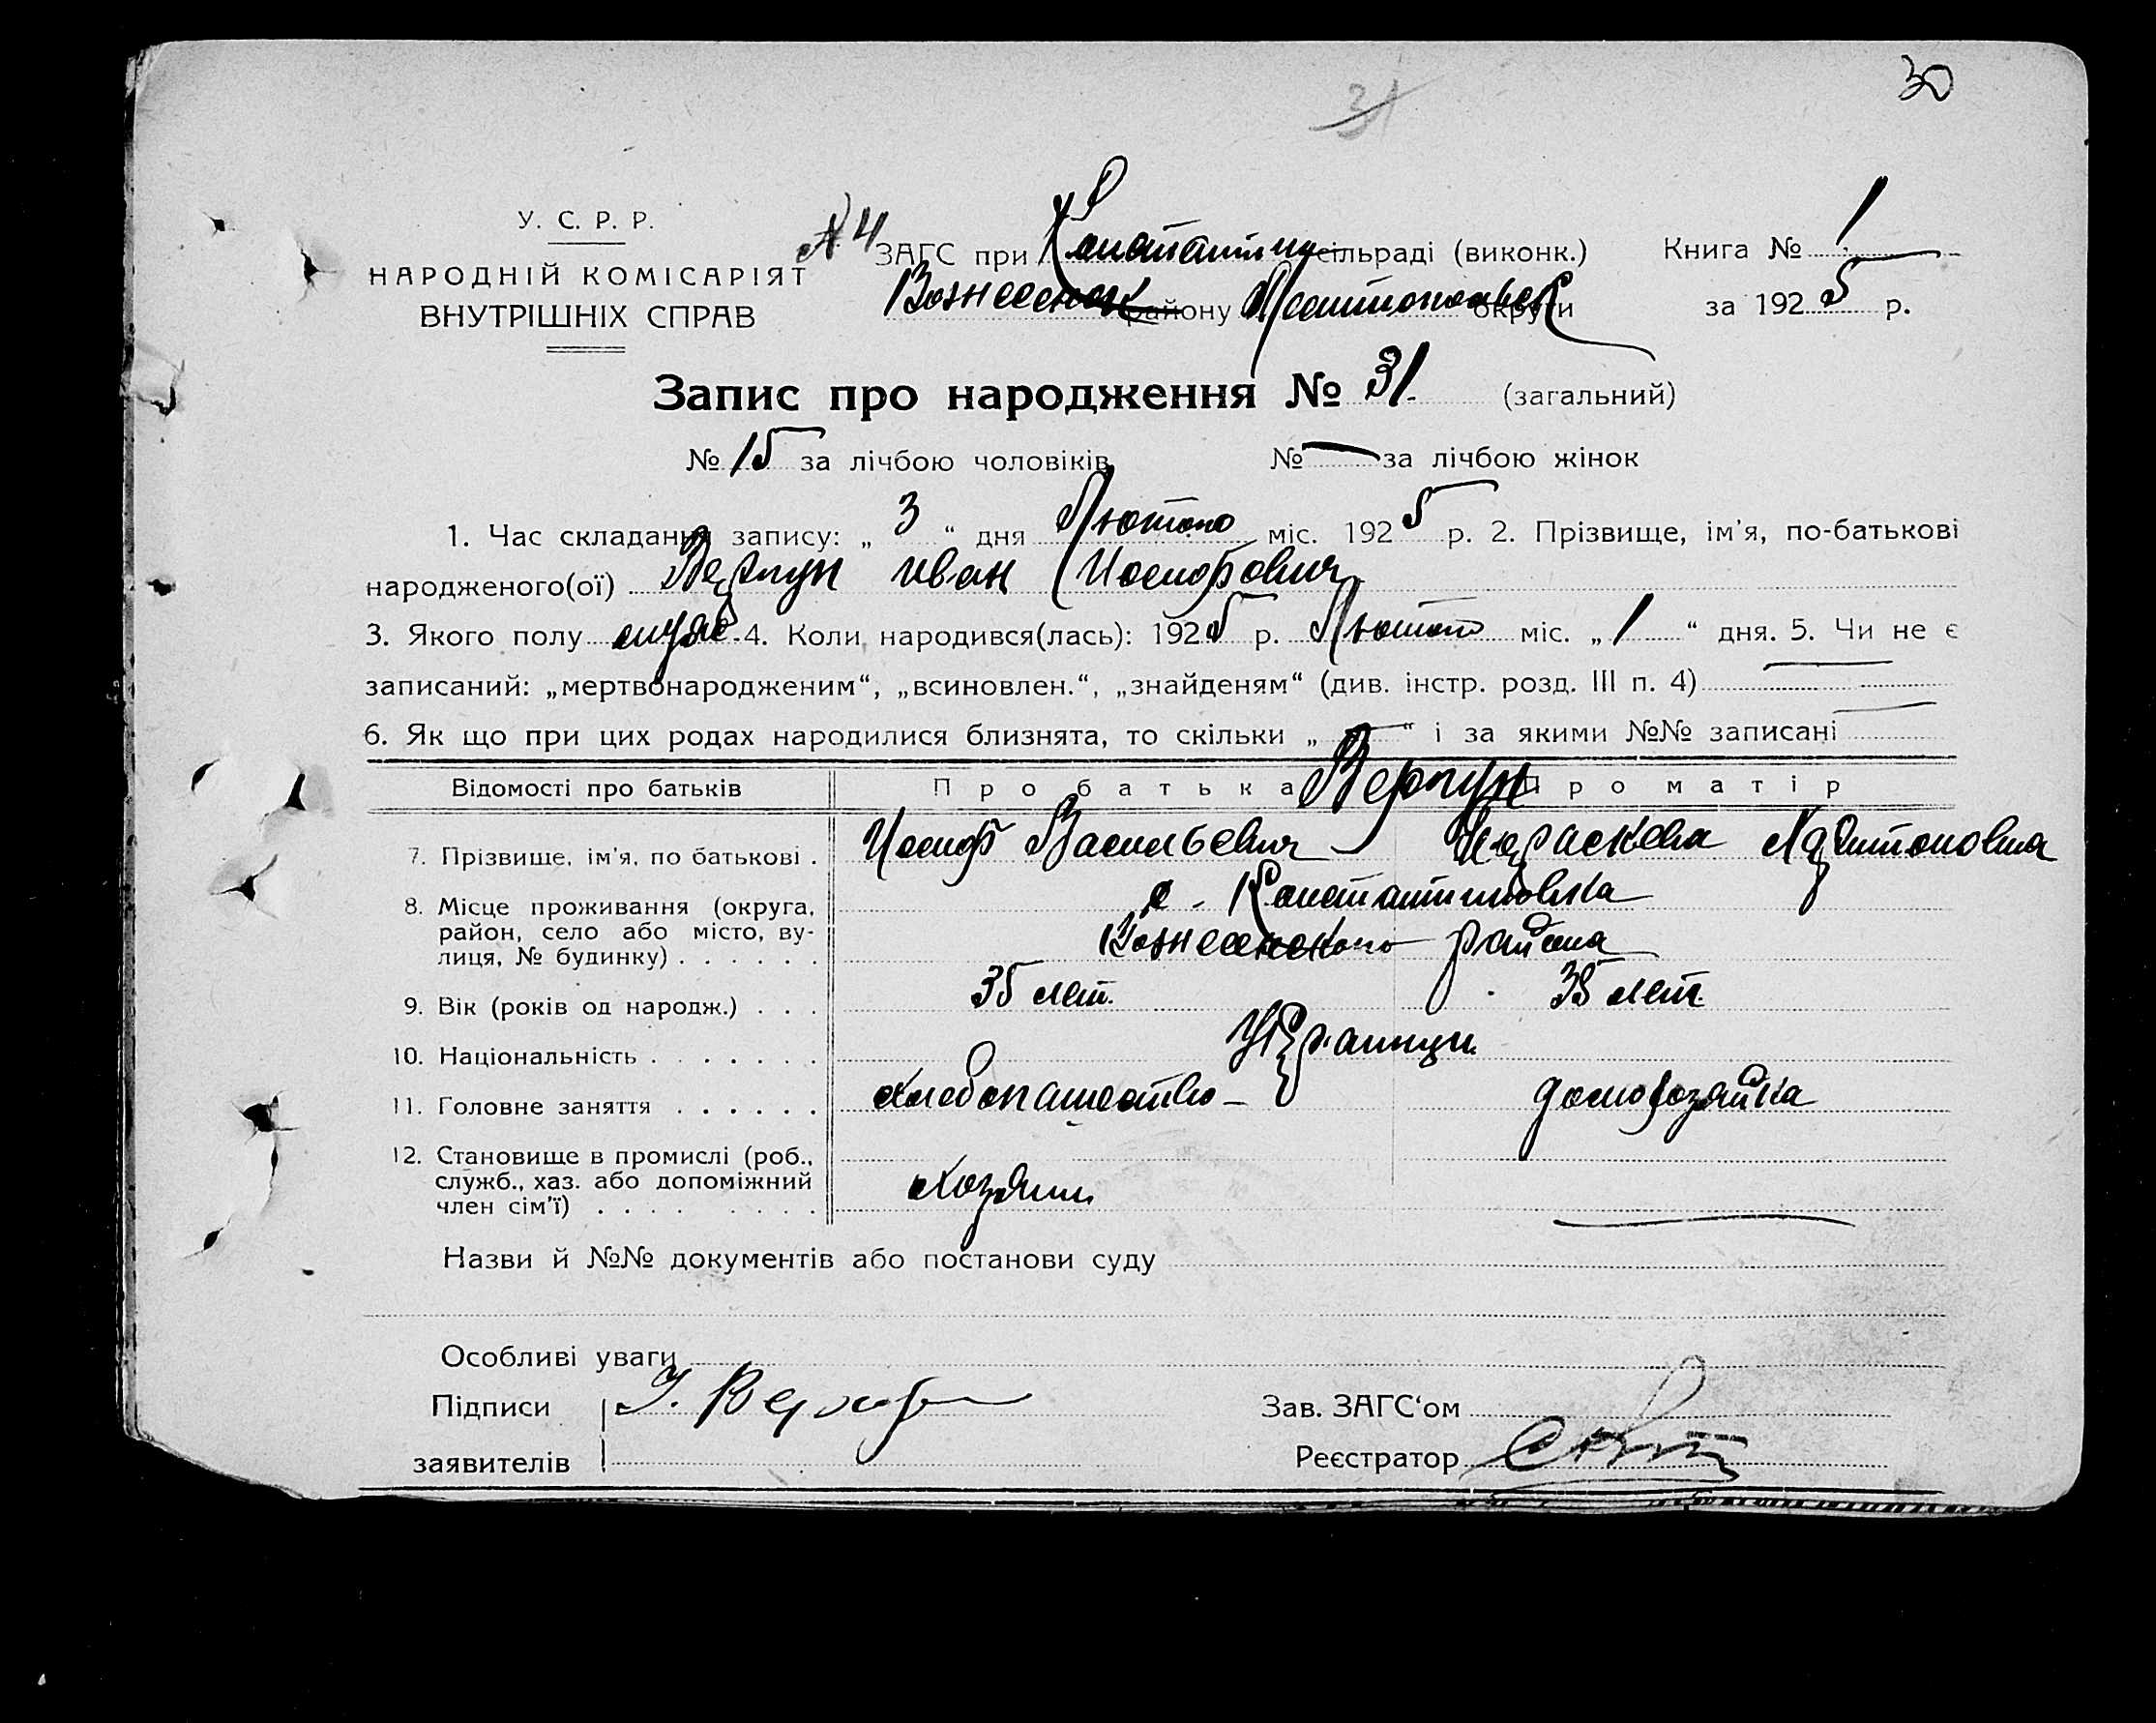 30
31
У. С. Р. Р.
НАРОДНІЙ КОМІСАРІЯТ
ВНУТРІШНІХ СПРАВ
№ 4 ЗАГС при Константин сільраді (виконк.)
Вознесенск району Мелитопольск округи
Книга № 1
за 1925 р.
Запис про народження № 31. (загальний)
№ 15 за лічбою чоловіків № — за лічбою жінок
1. Час складання запису: „ 3 “ дня Лютого міс. 1925 р. 2. Прізвище, ім'я, по-батькові
народженого(ої) Верпун Иван Иосифович
3. Якого полу муж. 4. Коли народився(лась): 1925 р. Лютого міс. „ 1 “ дня. 5. Чи не є
записаний: „мертвонародженим“, „всиновлен.“, „знайденям“ (див. інстр. розд. III п. 4) —
6. Як що при цих родах народилися близнята, то скільки „ — “ і за якими №№ записані —
Відомості про батьків Про батька Про матір
Верпун
7. Прізвище, ім'я, по батькові . Иосиф Васильевич Параскева
8. Місце проживання (округа, район, село або місто, ву-
лиця, № будинку) . . . . . . с. Константиновка
Вознесенского района
9. Вік (років од народж.) . . . 35 лет. 35 лет.
10. Національність . . . . . . . Украинцы
11. Головне заняття . . . . . . Хлебопашество — домохозяйка
12. Становище в промислі (роб.,
служб., хаз. або допоміжний
член сім'ї) . . . . . . . . Хозяин —
Назви й №№ документів або постанови суду
Особливі уваги
Підписи
заявителів
Зав. ЗАГС‘ом
Реєстратор